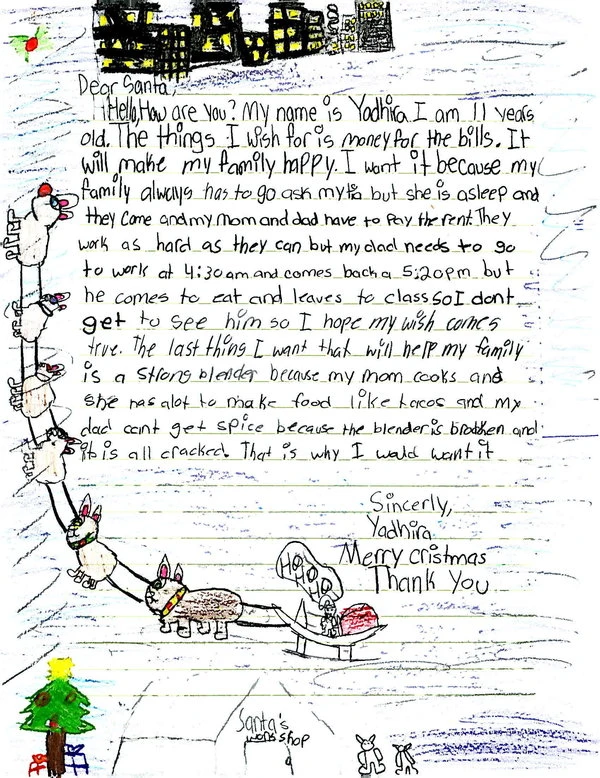 Dear Santa,
Hello, How are you? My name is Yadhira I am 11 years
old. The things I wish for is money for the bills. It
will make my family happy. I want it because my
family always has to go ask my tia but she is asleep and
they come and my mom and dad have to pay the rent. They
work as hard as they can but my dad needs to go
to work at 4:30am and comes back a 5:20pm but
he comes to eat and leaves to class so I dont
get to see him so I hope my wish comes
true. The last thing I want that will help my family
is a strong blender because my mom cooks and
she has alot to make food like tacos and my
dad cant get spice because the blender is brooken and
it is all cracked. That is why I would want it
Sincerly,
Yadhira
Merry cristmas
Thank You
HO
HO
HO
Santa's
workshop